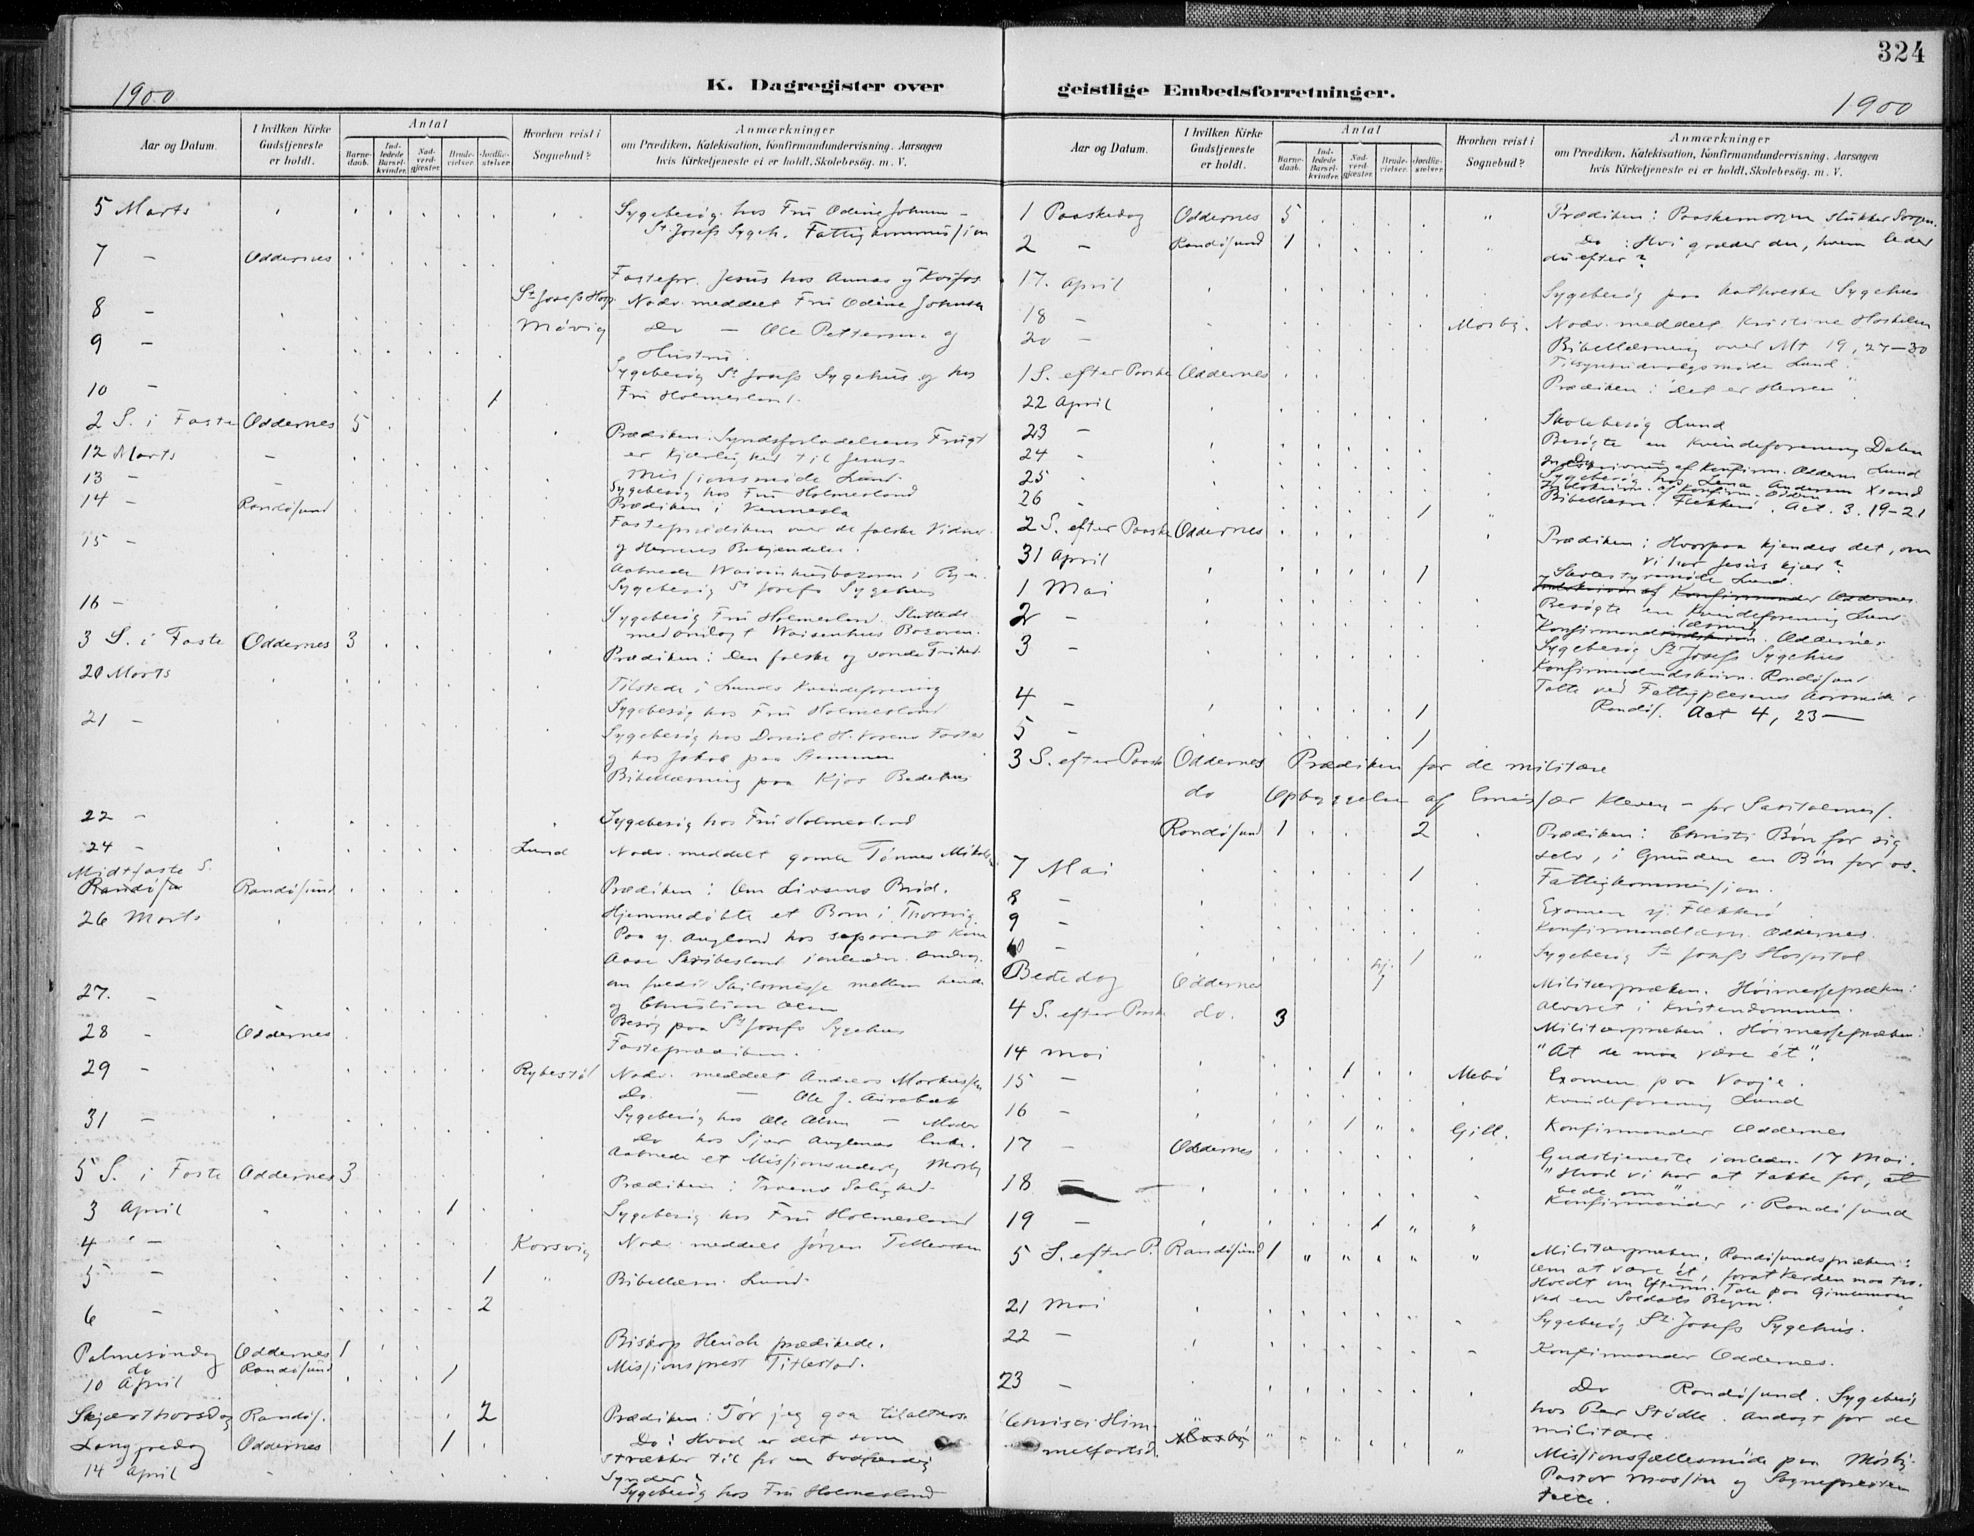 324
K. Dagregister over geistlige Embedsforretninger.
1900
1900
Aar og Datum. I hvilken Kirke Gudstjeneste er holdt. Antal Barnedaab. Indledede Barselkvinder. Nadverdgjester. Brudevielser. Jordfæstelser. Hvorhen reist i Sognebud? Anmærkninger om Prædiken, Katekisation, Konfirmandundervisning. Aarsagen hvis Kirketjeneste ei er holdt, Skolebesøg. m. V.
5 Marts Sygebesøg hos Fru Odine Johnsen
St Josefs Sygeh. Fattigkommission
7 - Oddernes
Fastepr. Jesus hos Annas og Kaifas
8 - St Josefs Hosp. Nadv. meddelt Fru Odine Johnsen
9 - Møvig Do - Ole Pettersen og
Hustru.
Sygebesøg St Josefs Sygehus og hos
10 - 1 Fru Holmesland.
2 S. i Faste Oddernes 5
Prædiken: Syndsforladelsens Frugt
12 Marts - er Kjærlighed til Jesus.
13 - Missionsmøde Lund.
Sygebesøg hos Fru Holmesland
14 - Randøsund Prædiken i Vennesla
Fasteprædiken over de falske Vidner
15 - og Herrens Bekjendelse.
Aabnede Waisenhusbazaren i Byen.
Sygebesøg St Josefs Sygehus
16 - Sygebesøg Fru Holmesland. Sluttede
med Andagt Waisenhus Bazaren.
3 S. i Faste Oddernes 3 Prædiken: Den falske og sande Frihed.
20 Marts Tilstede i Lunds Kvindeforening
Sygebesøg hos Fru Holmesland
21 - Sygebesøg hos Daniel H. Fosters
og hos Jakob paa Stemmen
Bibellæsning paa Kjos Bedehus
22 - Sygebesøg hos Fru Holmesland
24 - Lund Nadv. meddelt gamle Tønnes
Midtfaste S. Randøsund Prædiken: Om Livsens Brød.
26 Marts Hjemmedøbte et Barn i
27. - mellem hende
og Christian Olsen
Besøg paa St Josefs Sygehus
28 - Oddernes Fasteprædiken.
29 - Rybestøl Nadv. meddelt Andreas Markussen
Do. - Ole J. Aurebæk
31 - Sygebesøg hos Ole Olsen - Moder
Do hos
Aabnede et Missionsudsalg Mosby
5 S. i Faste Oddernes 3 Prædiken: Troens Salighed.
3 April 1 Sygebesøg hos Fru Holmesland
4 - Korsvig Nadv. meddelt Jørgen Tellevsen
5 - 1 Bibellæsn. Lund.
6 - 2
Palmesøndag Oddernes 1 Biskop Heuch prædikede.
do Randøsund Missionsprest Titlestad.
10 April 1
Skjærthorsdag Randøs. 2 Prædiken: Tør jeg gaa tilalters
Langfredag Oddernes 1 Do: Hvad er det som
strækker til for en bodfærdig
14 April Synder?
Sygebesøg hos Fru Holmesland
Aar og Datum. I hvilken Kirke Gudstjeneste er holdt. Antal Barnedaab. Indledede Barselkvinder. Nadverdgjester. Brudevielser. Jordfæstelser. Hvorhen reist i Sognebud? Anmærkninger om Prædiken, Katekisation, Konfirmandundervisning. Aarsagen hvis Kirketjeneste ei er holdt, Skolebesøg. m. V.
1 Paaskedag Oddernes 5 " Prædiken: Paaskemorgen slukker Sorgen.
2 - Randøsund 1 Do: Hvi græder du, hvem leder
du efter?
17. April Sygebesøg paa katholske Sygehus
18 - Mosby. Nadv. meddelt Kristine
20 - Bibellæsning over Mt 19, 27-30
Tilsynsudvalgsmøde Lund.
1 S. efter Paaske Oddernes Prædiken: "Det er Herren".
22 April
23 - Skolebesøg Lund
24 - Besøgte en Kvindeforening Dalen
25 - af Konfirm. Oddernes Lund
Sygebesøg hos Lena Andersen Xsand
26 - 1 Bibellæsn. Flekkerø. Act. 3. 19-21
2 S. efter Paaske Oddernes
Prædiken: Hvorpaa kjendes det, om
31 April 1 vi har Jesus kjær?
1 Mai Skolestyremøde Lund.
2 - Besøgte en Kvindeforening Lund
Konfirmandlæsning. Oddernes
3 - Sygebesøg St Josefs Sygehus
Randøsund
4 - 1 Talte ved Fattigpleiens Aarsmøde i
Randøs. Act 4, 23-
5 - 1
3 S. efter Paaske Oddernes Prædiken for de militære
do Opbyggelse af Emissær Kleven - for
Randøsund 1 2 Prædiken: Christi Bøn for sig
selv, i Grunden en Bøn for os.
7 Mai 1 Fattigkommission.
8 - Examen Flekkerø
9 - Konfirmandlæsn. Oddernes
10 - 1 " Sygebesøg St Josefs Hospital
Bededag Oddernes Militærpræken. Høimessepræken:
Alvoret i Kristendommen.
4 S. efter Paaske do. 3 Militærpræken. Høimessepræken:
14 Mai "At de maa være ét".
15 - 1 Mebø Examen paa Vaaje.
16 - Kvindeforening Lund
1 " " Gill. Konfirmander Oddernes
17 - Oddernes Gudstjeneste i anledn. 17 Mai.
18 - "Hvad vi har at takke for, at
bede om"
Konfirmander i Randøsund
19 - 1 " "
5 S. efter P. Randøsund 1 " " " " " Militærpræken. Randøsundspræken:
om at være ét, forat Verden maa tro.
Holdt om Efterm. Tale paa Gimlemoen
21 Mai ved en Soldats
Sygebesøg St. Josefs Sygehus.
22 - Konfirmander Oddernes.
23 - Do Randøsund. Sygebesøg
hos Per Stødle. Andagt for de
Christi Himmelfartsd. Mosby militære.
Missionsfællesmøde paa Mosby.
Pastor og Sognepresten
talte.